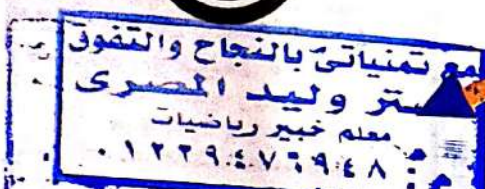 مع تمنياتى بالنجاح والتفوق
ستر وليد المصرى
معلم خبير رياضيات
٠١٢٢٩٤٧٦٩٤٨